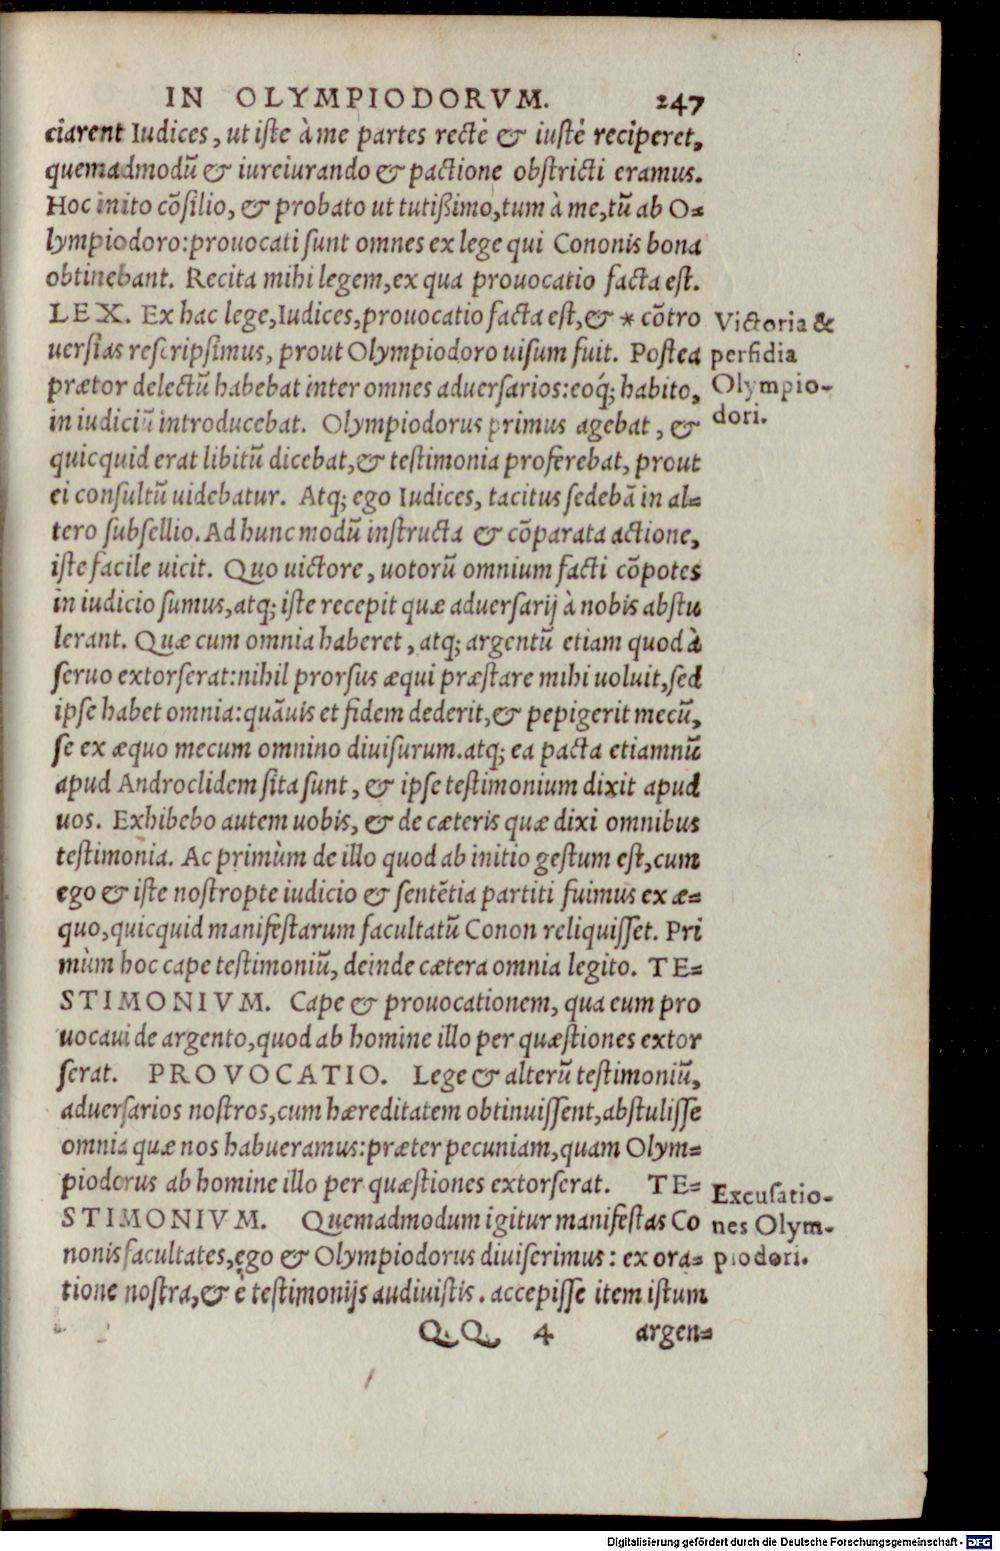 IN OLYMPIODORVM. 247
ciarent Iudices, ut iste à me partes rectè & iustè reciperet,
quemadmodũ & iureiurando & pactione obstricti eramus.
Hoc inito cõsilio, & probato ut tutißimo, tum à me, tũ ab O=
lympiodoro: prouocati sunt omnes ex lege qui Cononis bona
obtinebant. Recita mihi legem, ex qua prouocatio facta est.
LEX. Ex hac lege, Iudices, prouocatio facta est, & * cõtro
uersias rescripsimus, prout Olympiodoro uisum fuit. Postea
prætor delectũ habebat inter omnes aduersarios: eoq́; habito,
in iudiciũ introducebat. Olympiodorus primus agebat, &
quicquid erat libitũ dicebat, & testimonia proferebat, prout
ei consultũ uidebatur. Atq; ego Iudices, tacitus sedebã in al=
tero subsellio. Ad hunc modũ instructa & cõparata actione,
iste facile uicit. Quo uictore, uotorũ omnium facti cõpotes
in iudicio sumus, atq; iste recepit quæ aduersarij à nobis abstu
lerant. Quæ cum omnia haberet, atq; argentũ etiam quod à
seruo extorserat: nihil prorsus æqui præstare mihi uoluit, sed
ipse habet omnia: quãuis et fidem dederit, & pepigerit mecũ,
se ex æquo mecum omnino diuisurum. atq; ea pacta etiamnũ
apud Androclidem sita sunt, & ipse testimonium dixit apud
uos. Exhibebo autem uobis, & de cæteris quæ dixi omnibus
testimonia. Ac primùm de illo quod ab initio gestum est, cum
ego & iste nostropte iudicio & sentẽtia partiti fuimus ex æ=
quo, quicquid manifestarum facultatũ Conon reliquisset. Pri
mùm hoc cape testimoniũ, deinde cætera omnia legito. TE=
STIMONIVM. Cape & prouocationem, qua eum pro
uocaui de argento, quod ab homine illo per quæstiones extor
serat. PROVOCATIO. Lege & alterũ testimoniũ,
aduersarios nostros, cum hæreditatem obtinuissent, abstulisse
omnia quæ nos habueramus: præter pecuniam, quam Olym=
piodorus ab homine illo per quæstiones extorserat. TE=
STIMONIVM. Quemadmodum igitur manifestas Co
nonis facultates, ego & Olympiodorus diuiserimus: ex ora=
tione nostra, & è testimonijs audiuistis. accepisse item istum
QQ 4 argen=
Victoria &
perfidia
Olympio-
dori.
Excusatio-
nes Olym-
piodori.
Digitalisierung gefördert durch die Deutsche Forschungsgemeinschaft - DFG